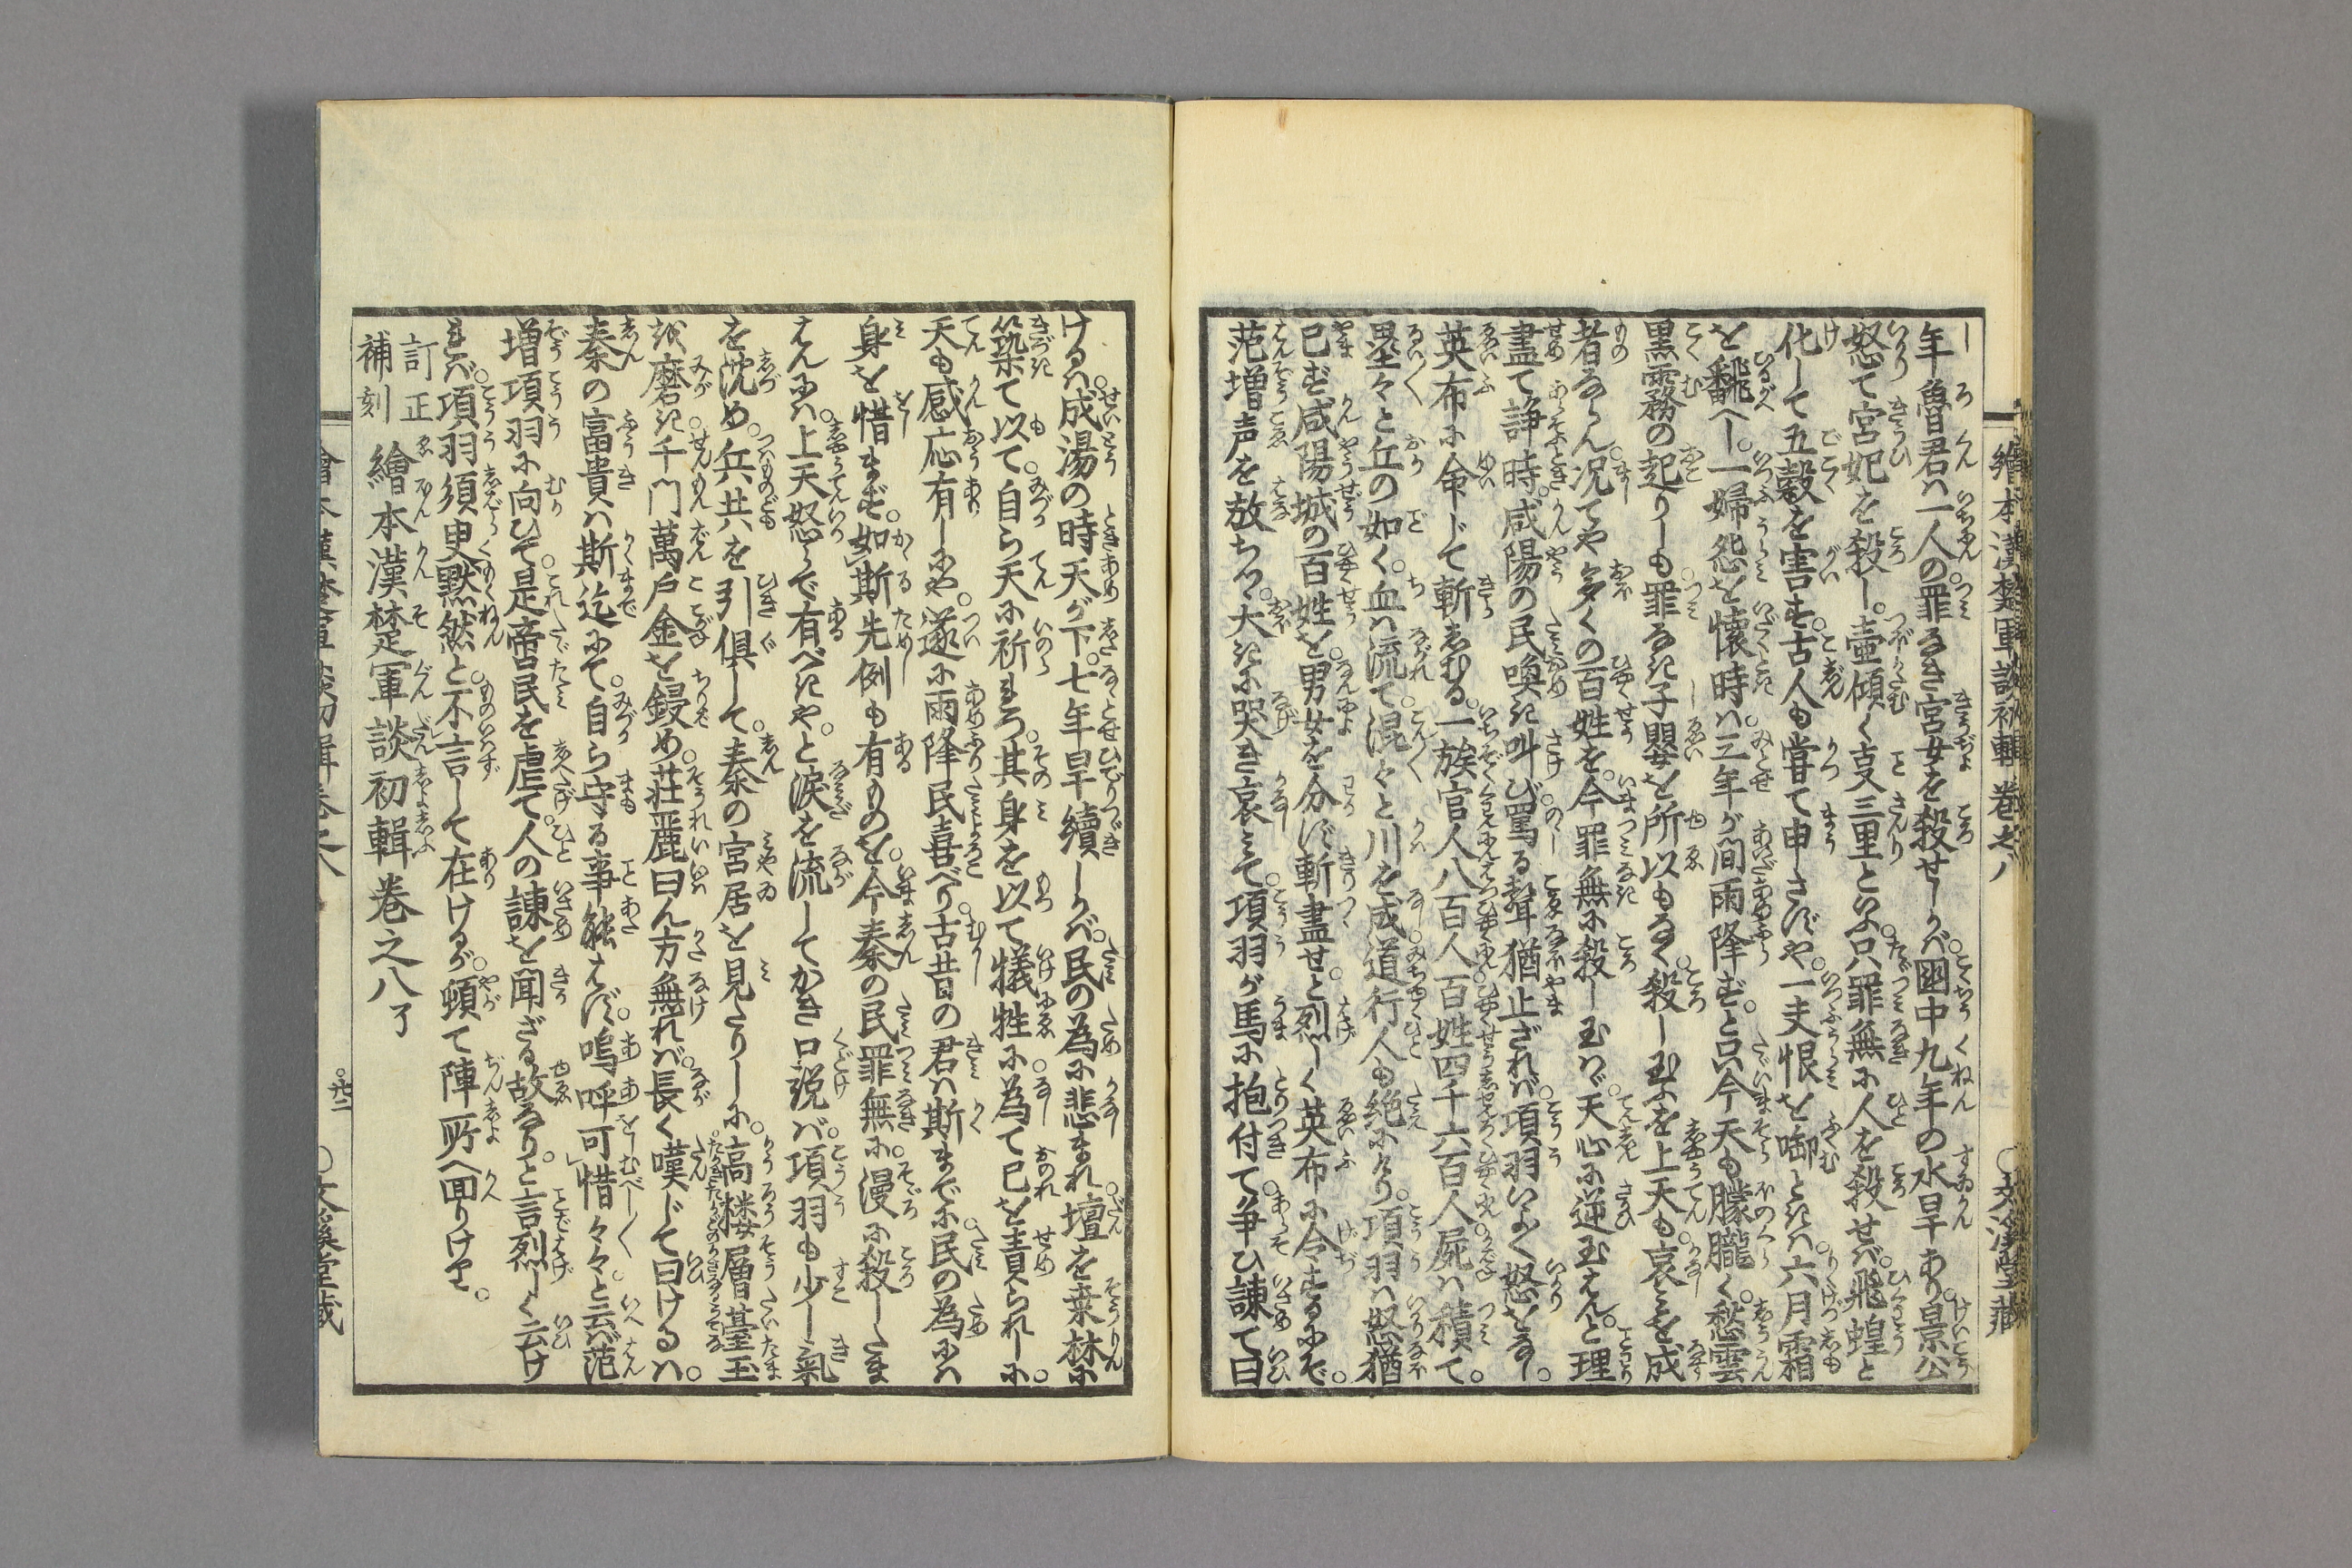 繪本漢楚軍談初輯 卷之八 ○文溪堂藏
年魯君ハ一人の罪なき宮女を殺せしかバ。国中九年の水旱あり。景公
怒て宮妃を殺し。壷傾く支三里といふ。只罪無に人を殺せバ。飛蝗と
化して五穀を害す。古人も嘗て申さずや。一夫恨を啣ときハ六月霜
を飜へし。一婦怨を懐時ハ三年が間雨降ずと。只今天も朦朧く愁雲
黒霧の起りしも罪なき子嬰を所以もなく殺し玉ふを上天も。哀を成
者ならん。况てや多くの百姓を。今罪無に殺し玉ハヾ。天心に逆玉はんと理
盡て諍時。咸陽の民喚き叫び罵る聲猶止ざれバ。項羽いよく怒をなし。
英布に命じて斬しむる。一族官人八百人百姓四千六百人屍ハ積て。
塁々と丘の如く。血ハ流て。混々と川を成。道行人も絶にけり。項羽ハ怒猶
已ず。咸陽城の百姓を。男女を分ず斬盡せと。烈しく英布に令するにぞ。
范増声を放ちつゝ。大きに哭き哀みて。項羽が馬に抱付て。争ひ諌て曰
けるハ。成湯の時天が下。七年旱續しかバ。民の為に悲まれ。壇を桒林に
築て以て。自ら天に祈るころ。其身を以て犠牲に。為て己を責られしに。
天も感応有しにや。遂に雨降民喜べり。古昔の君ハ斯まで に民の為にハ
身を惜まず。如斯先例も有ものを。今秦の民罪無に。漫に殺したま
はんにハ。上天怒らで有べきや。と涙を流してかき口説バ。項羽も少し氣
を沈め。兵共を引倶して。秦の宮居を見たりしに。高楼層臺玉
を磨き千門萬戸金を鏤め。荘麗曰ん方無れバ。長く嘆じて曰けるハ。
秦の富貴ハ斯迄にて。自ら守る事能はず。嗚呼可惜々々と云バ。范
増項羽に向ひて。是帝民を虐て。人の諌を聞ざる故なり。と言烈しく云け
れバ。項羽須臾黙然と。不言して在けるが。頓て陣所へ回りけり。
訂正
補刻 繪本漢楚軍談初輯卷之八了